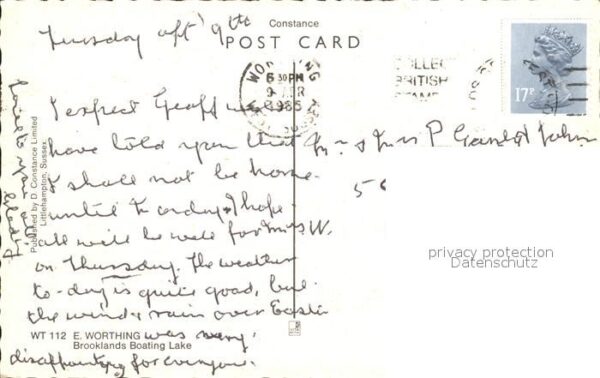 Constance
POST CARD
Tuesday aft 9th
WORTHING
6 30PM
9 APR
1985
COLLECT
BRITISH
STAMPS
17P
I expect Geoff will
have told you that
I shall not be home
until to-day. I hope
all will be well for Mrs W.
on Thursday. The weather
to-day is quite good, but
the wind & rain over Easter
was very
disappointing for everyone.
Love to you all,
Mr & Mrs P
John
privacy protection
Datenschutz
Published by D. Constance Limited
Littlehampton, Sussex
WT 112 E. WORTHING
Brooklands Boating Lake